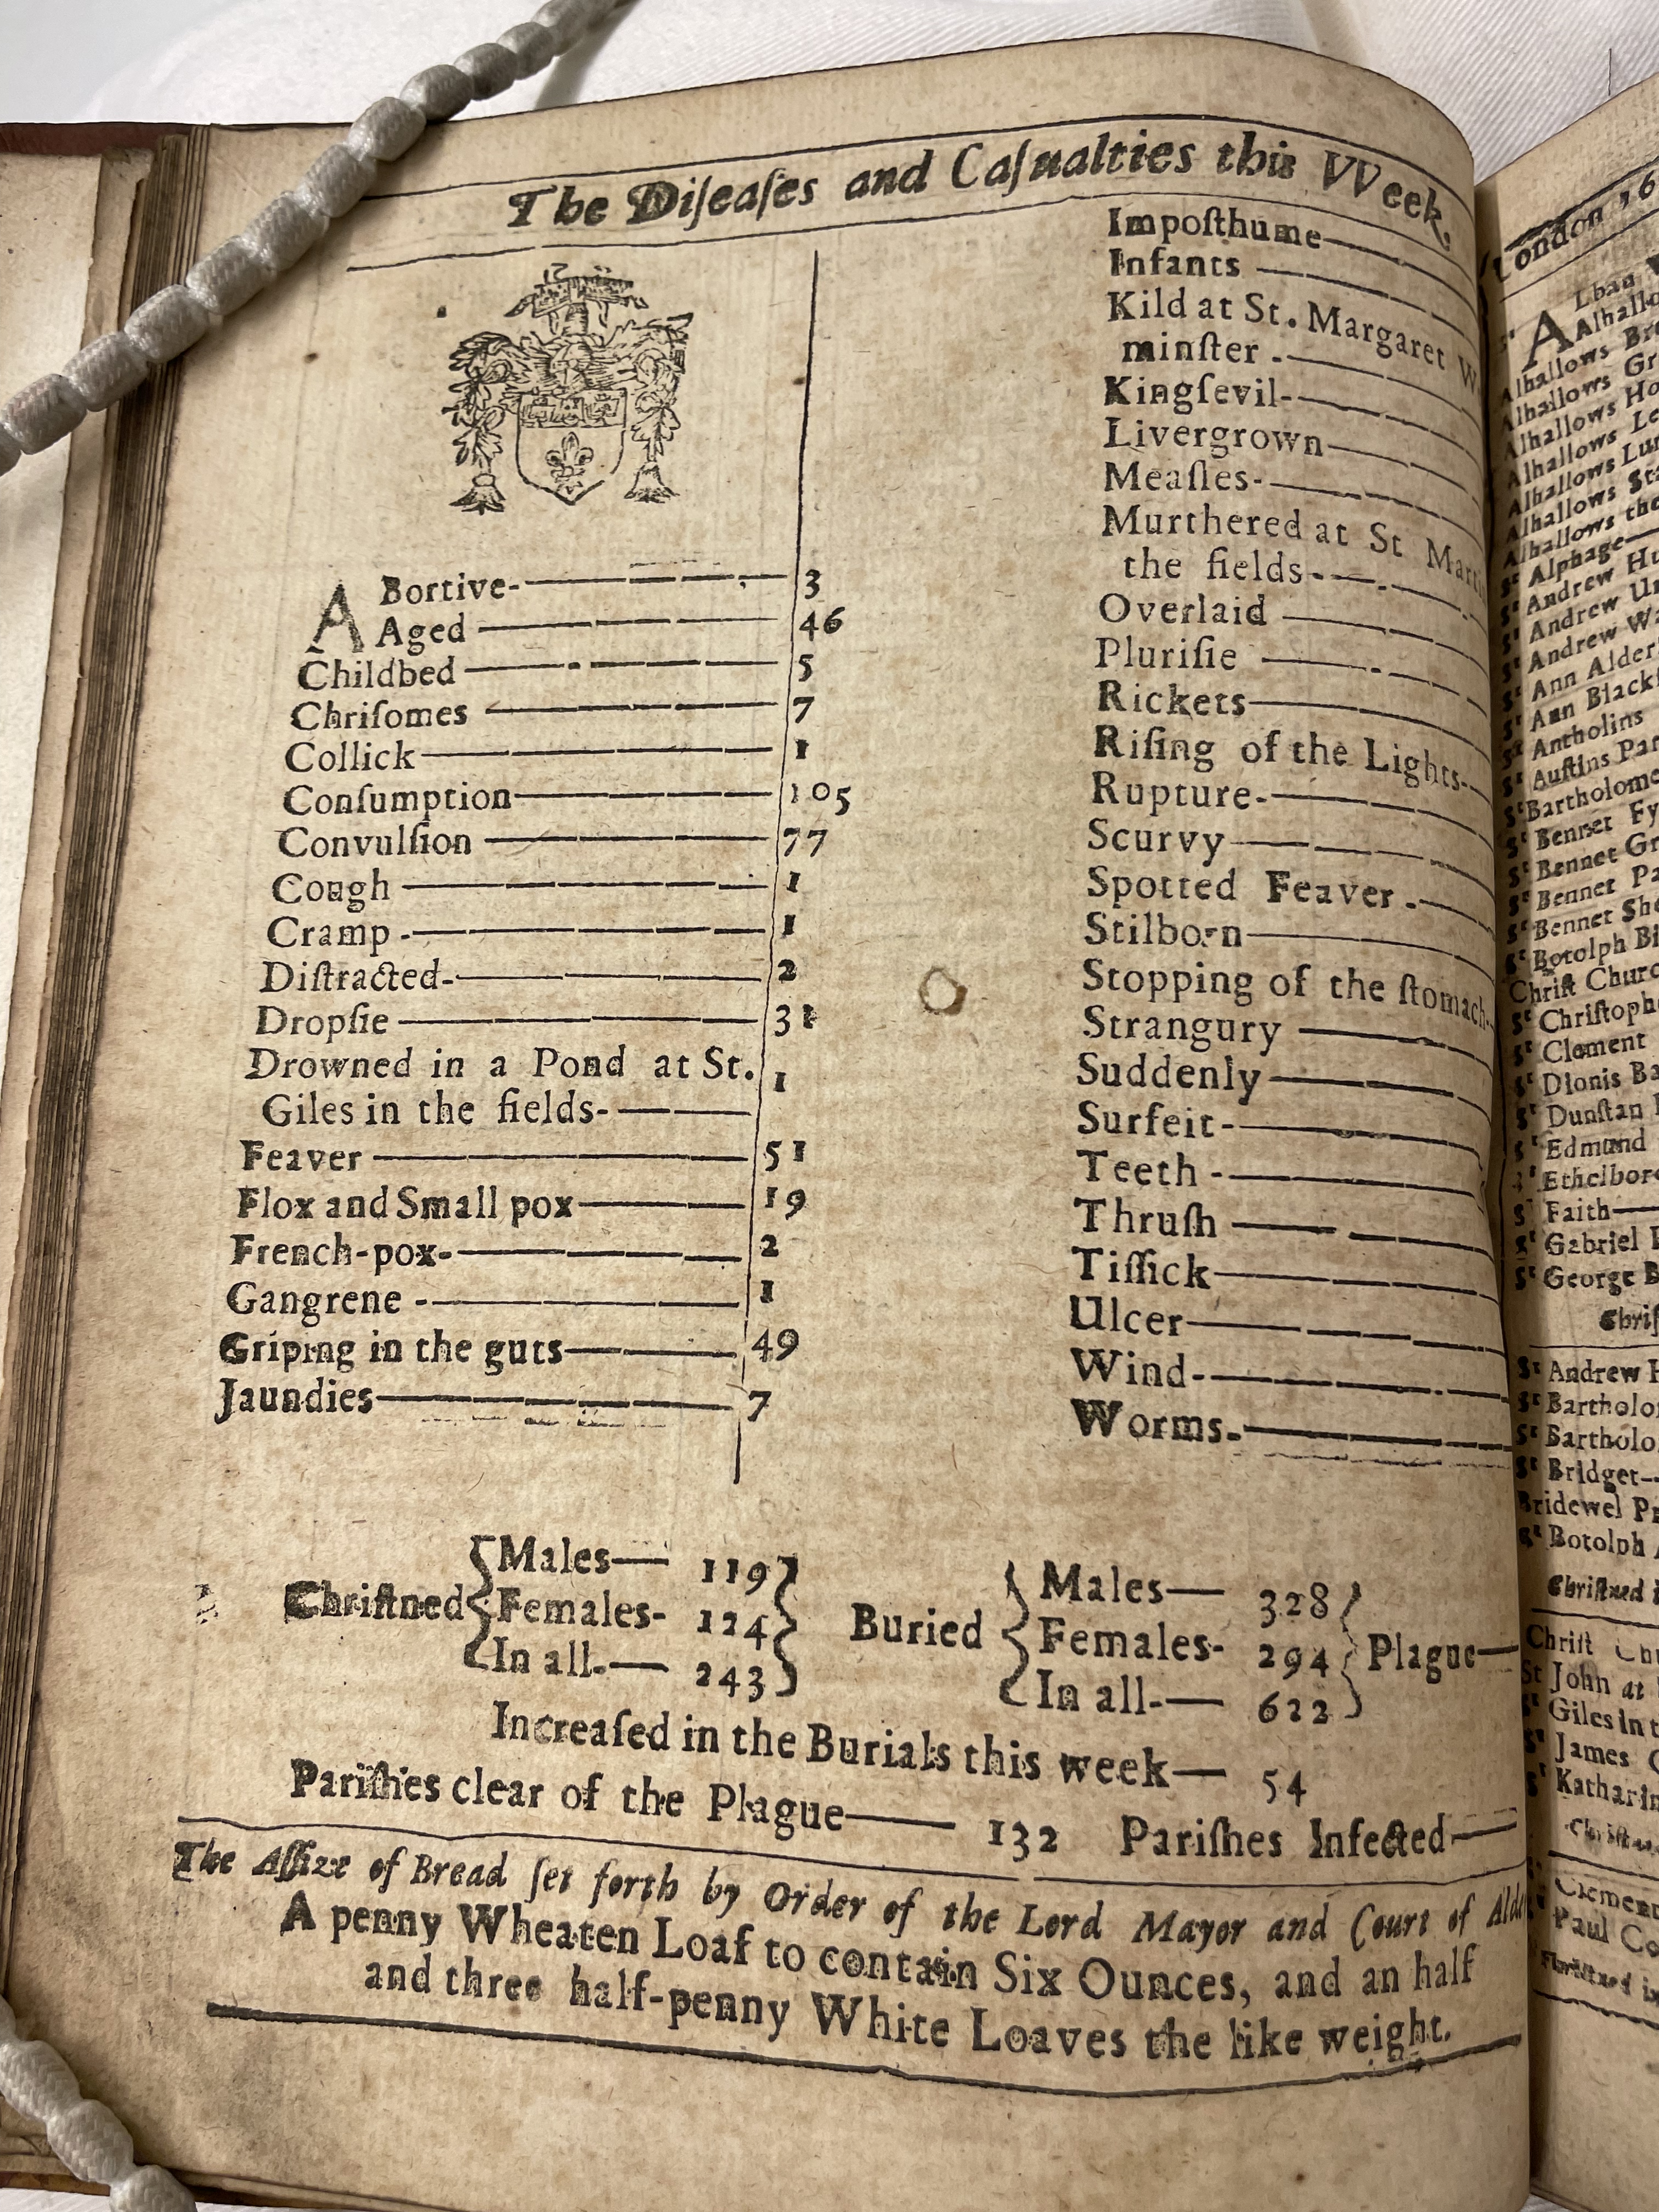 The Diſeaſes and Caſualties this VVeek.
ABortive- 3
Aged 46
Childbed 5
Chriſomes 7
Collick 1
Conſumption 105
Convulſion 77
Cough 1
Cramp 1
Diſtracted 2
Dropſie 31
Drowned in a Pond at St. 1
Giles in the fields-
Feaver 51
Flox and Small pox 19
French-pox- 2
Gangrene 1
Griping in the guts 49
Jaundies 7
Impoſthume
Infants
Kild at St. Margaret W
minſter
Kingſevil
Livergrown
Meaſles
Murthered at St
the fields
Overlaid
Pluriſie
Rickets
Riſing of the Lights
Rupture
Scurvy
Spotted Feaver
Stilborn
Stopping of the ſtomach
Strangury
Suddenly
Surfeit
Teeth
Thruſh
Tiſſick
Ulcer
Wind
Worms
Chriſtned
Males 119
Females 124
In all 243
Buried
Males 328
Females 294
In all 622
Plague
Increaſed in the Burials this week 54
Pariſhes clear of the Plague 132 Pariſhes Infected
The Aſſize of Bread ſet forth by Order of the Lord Mayor and Court of
A penny Wheaten Loaf to contain Six Ounces, and an half
and three half-penny White Loaves the like weight.
London
Lban
Alhallows
Alhallows
Alhallows
Alhallows
Alhallows
Alhallows
Alhallows
Alhallows the
Sᵗ Alphage
Sᵗ Andrew
Sᵗ Andrew
Sᵗ Andrew
Sᵗ Ann
Sᵗ Ann
Sᵗ Antholins
Sᵗ Auſtins
Sᵗ
Sᵗ Bennet
Sᵗ Bennet
Sᵗ Bennet
Sᵗ Bennet
Sᵗ Botolph
Chriſt
Sᵗ
Sᵗ Clement
Sᵗ Dionis
Sᵗ Dunſtan
Sᵗ Edmund
Sᵗ
Sᵗ Faith
Sᵗ Gabriel
Sᵗ George
Sᵗ Andrew
Sᵗ
Sᵗ
Sᵗ Bridget
Bridewel
Sᵗ Botolph
Chriſtned
Chriſt
St John at
Sᵗ Giles in
Sᵗ James
Sᵗ
Paul